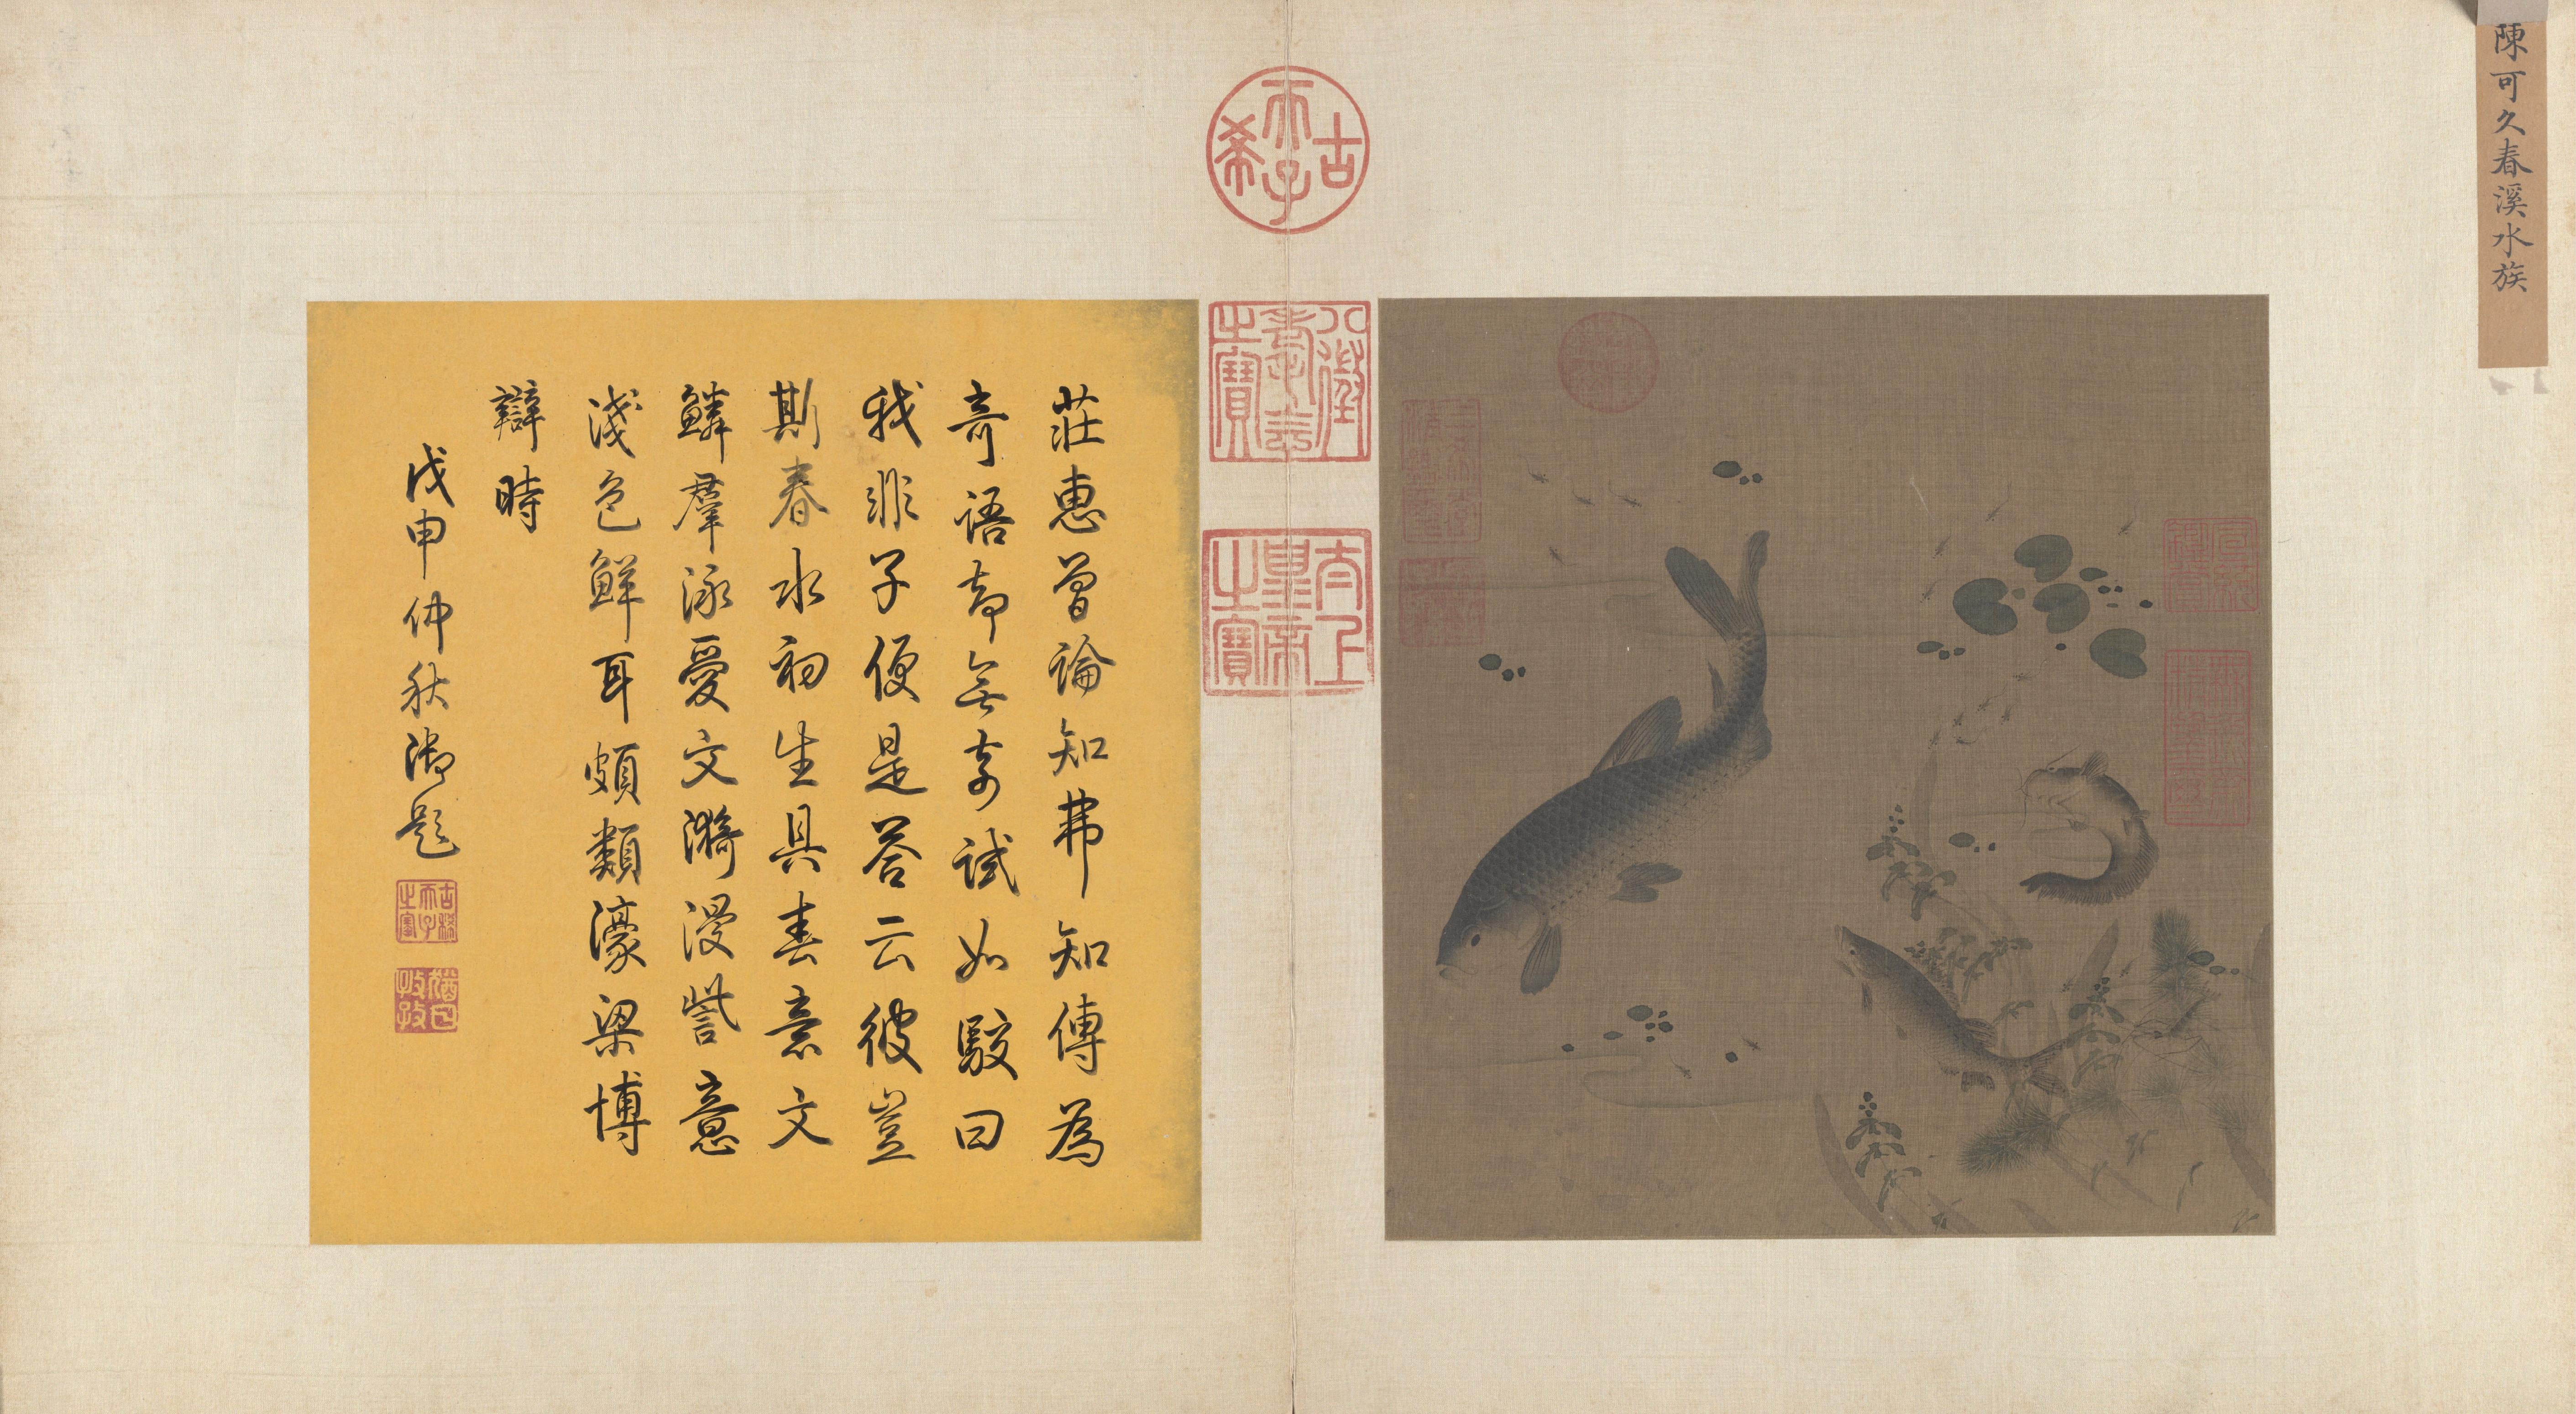 陳可久春溪水族
古希天子
八徵耄念之寶
太上皇帝之寶
莊惠曾論知弗知傳為
奇語却無奇試如駮曰
我非子便是答云彼豈
斯春水初生具春意文
鱗羣泳愛文漪漫訾意
淺色鮮耳頗類濠梁博
辯時
戊申仲秋御題
古稀天子之寶
猶日孜孜